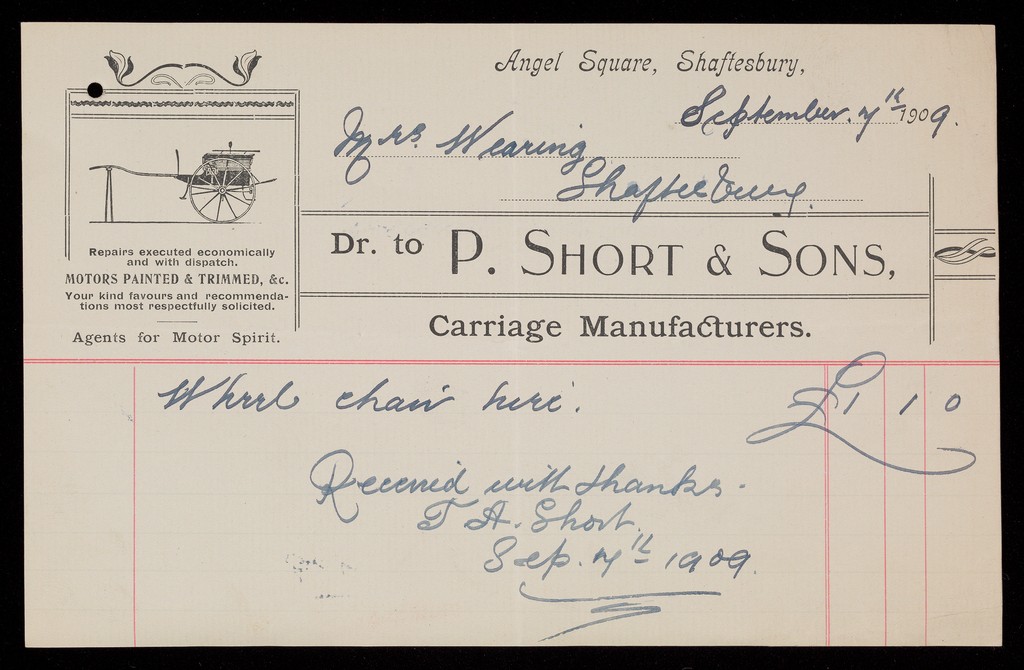 Angel Square, Shaftesbury,
September. 7th 1909.
Mrs. Wearing
Shaftesbury.
Dr. to P. SHORT & SONS,
Carriage Manufacturers.
Repairs executed economically
and with dispatch.
MOTORS PAINTED & TRIMMED, &c.
Your kind favours and recommenda-
tions most respectfully solicited.
Agents for Motor Spirit.
Wheel chair hire. £1 1 0
Received with thanks.
T A. Short.
Sep. 7th 1909.